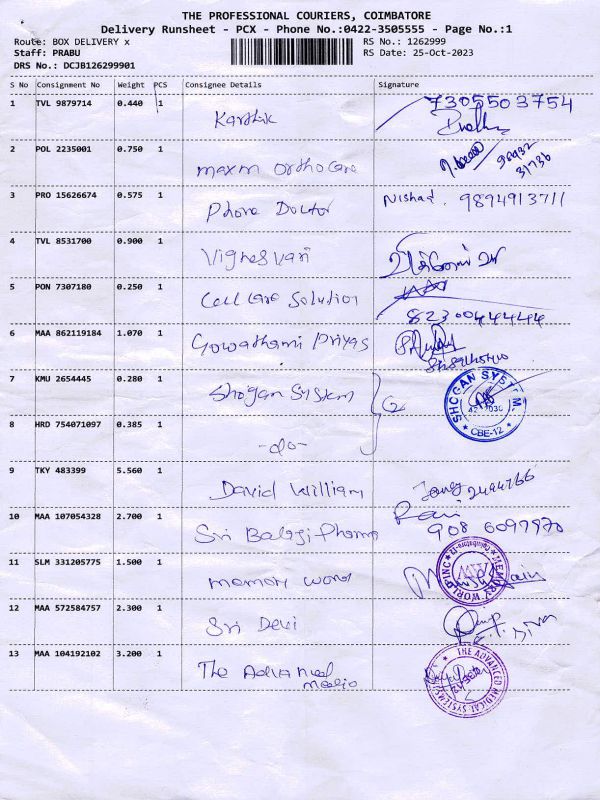 THE PROFESSIONAL COURIERS, COIMBATORE
Delivery Runsheet - PCX - Phone No.:0422-3505555 - Page No.:1
Route: BOX DELIVERY x RS No.: 1262999
Staff: PRABU RS Date: 25-Oct-2023
DRS No.: DCJB126299901
S No Consignment No Weight PCS Consignee Details Signature
1 TVL 9879714 0.440 1 Karthik 7305503754
2 POL 2235001 0.750 1 maxm orthocare
3 PRO 15626674 0.575 1 Phone Doctor Nishad. 9894913711
4 TVL 8531700 0.900 1 Vignesvari
5 PON 7307180 0.250 1 Cell Care Solution 8230044444
6 MAA 862119184 1.070 1 Gowathami Priyas
7 KMU 2654445 0.280 1 Shogan System SHOGAN SYSTEM CBE-12
8 HRD 754071097 0.385 1 -do-
9 TKY 483399 5.560 1 David William
10 MAA 107054328 2.700 1 Sri Balaji Pharma Ravi 908 6097970
11 SLM 331205775 1.500 1 memory world MEMORY WORLD INC
12 MAA 572584757 2.300 1 Sri Devi
13 MAA 104192102 3.200 1 The Advanced THE ADVANCED MEDICAL SYSTEMS